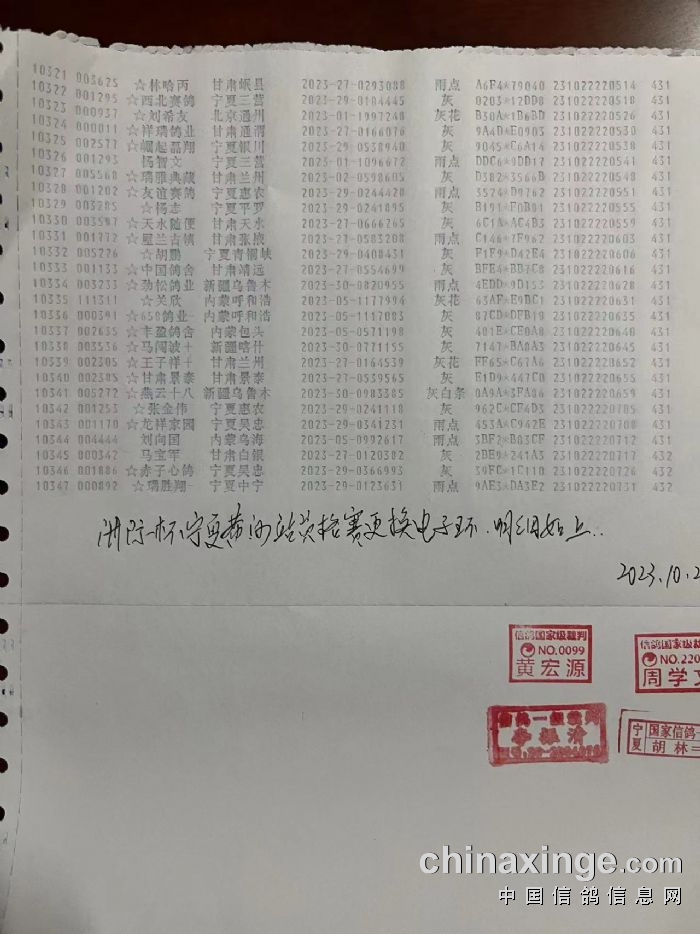 10321 003625 ☆林哈丙 甘肃岷县 2023-27-0293088 雨点 A6F4*79040 231022220514 431
10322 001295 ☆西北赛鸽 宁夏三营 2023-29-0104445 灰 0203*12DD8 231022220518 431
10323 000937 ☆刘希友 北京通州 2023-01-1997248 灰花 B30A*1D6BD 231022220526 431
10324 000011 ☆祥瑞鸽业 甘肃通渭 2023-27-0166076 灰 9A4D*E0903 231022220530 431
10325 002577 ☆崛起磊翔 宁夏银川 2023-29-0538940 灰 9045*C6A14 231022220538 431
10326 001293 杨智文 宁夏三营 2023-01-1096672 雨点 DDC6*9DD17 231022220541 431
10327 005568 ☆瑞雅典藏 甘肃兰州 2023-02-0598605 灰 D382*3566B 231022220548 431
10328 001202 ☆友谊赛鸽 宁夏惠农 2023-29-0244420 雨点 3574*D9762 231022220551 431
10329 003285 ☆杨志 宁夏平罗 2023-29-0241895 灰 B191*F0B01 231022220555 431
10330 003597 ☆天水随便 甘肃天水 2023-27-0666265 灰 6C1A*AC4B3 231022220559 431
10331 001772 ☆屋兰古镇 甘肃张掖 2023-27-0583208 雨点 C146*7F962 231022220603 431
10332 005226 ☆胡鹏 宁夏青铜峡 2023-29-0408431 灰 F1F9*D42E4 231022220606 431
10333 001133 ☆中国鸽舍 甘肃靖远 2023-27-0554699 灰 BFE4*BB7C8 231022220616 431
10334 003233 ☆劲松鸽业 新疆乌鲁木 2023-30-0820955 雨点 4EDD*9D153 231022220620 431
10335 111311 ☆关欣 内蒙呼和浩 2023-05-1177994 灰花 63AF*E9BC1 231022220631 431
10336 000391 ☆658鸽业- 内蒙呼和浩 2023-05-1117083 灰 87CD*DFB19 231022220635 431
10337 002635 ☆丰盈鸽舍 内蒙包头 2023-05-0571198 灰 401E*CE0A8 231022220640 431
10338 003536 ☆马闯波+ 新疆喀什 2023-30-0771155 灰 7147*BA0A3 231022220645 431
10339 002305 ☆王子祥+ 甘肃兰州 2023-27-0164539 灰花 FF65*C67A6 231022220652 431
10340 002385 ☆甘肃景泰 甘肃景泰 2023-27-0539565 灰 E1D9*447C0 231022220658 431
10341 005272 ☆燕云十八 新疆乌鲁木 2023-30-0983385 灰白条 0A9A*3FA86 231022220659 431
10342 001253 ☆张金伟 宁夏惠农 2023-29-0241118 灰 962C*CF4D3 231022220705 431
10343 001170 ☆龙祥家园 宁夏吴忠 2023-29-0341231 雨点 453A*C942E 231022220708 431
10344 004444 刘向国 内蒙乌海 2023-05-0992617 雨点 3BF2*B03CF 231022220712 431
10345 000342 马宝军 甘肃白银 2023-27-0120382 灰 2BE9*241A3 231022220717 432
10346 001886 ☆赤子心鸽 宁夏吴忠 2023-29-0366993 灰 39FC*1C110 231022220726 432
10347 000892 ☆瑞胜翔- 宁夏中宁 2023-29-0123631 雨点 9AE3*DA3E2 231022220731 432
洲际杯宁夏黄河站资格赛更换电子环.明细如上..
2023.10.2
信鸽国家级裁判 信鸽国家级裁
NO.0099 NO.220
黄宏源 周学文
信鸽一级裁判
李振清
宁夏 国家信鸽一
胡林
chinaxinge.com
中国信鸽信息网